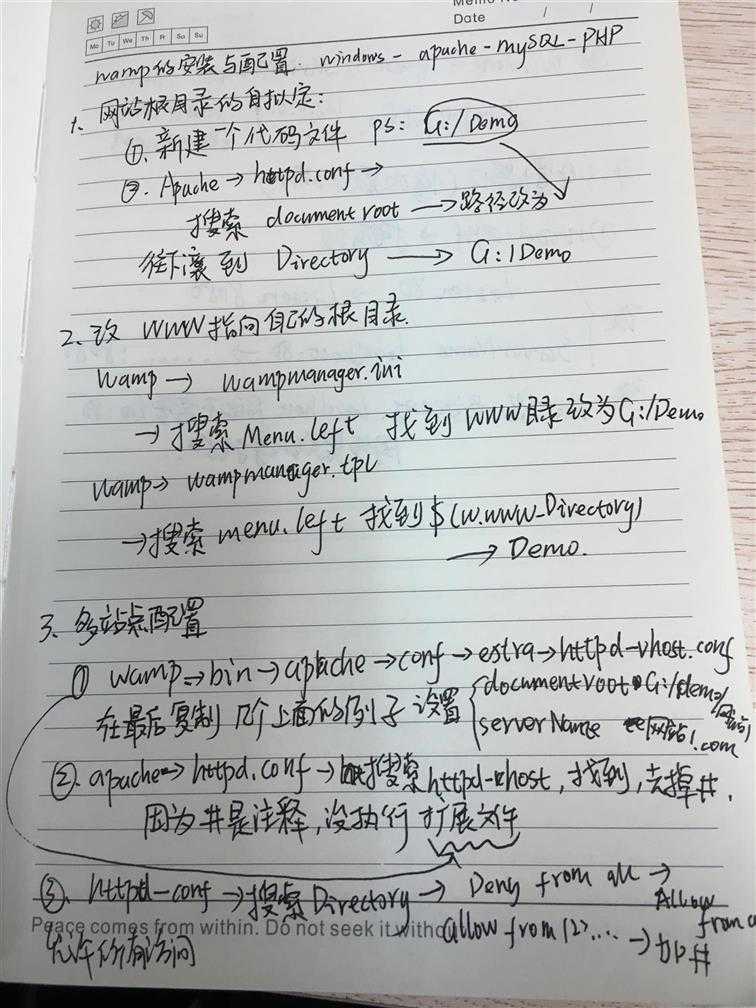 Memo No
Date / /
Mo Tu We Th Fr Sa Su
wamp的安装与配置. windows - apache - mySQL - PHP
1、网站根目录的自拟定:
①. 新建一个代码文件 ps: G:/Demo
②. Apache → httpd.conf →
搜索 document root → 路径改为
往下滚到 Directory → G:/Demo
2. 改 WWW 指向自己的根目录.
wamp → wampmanager.ini
→ 搜索 Menu.left 找到 WWW目录 改为 G:/Demo
wamp → wampmanager.tpl
→ 搜索 menu.left 找到 $(w.www-Directory)
→ Demo.
3、多站点配置
① wamp → bin → apache → conf → estra → httpd-vhost.conf
在最后复制 几个上面的例子 设置 { document root G:/demo/网站1
serverName 网站1.com
②. apache → httpd.conf → 搜索 httpd-vhost, 找到, 去掉#.
因为#是注释, 没执行 扩展文件
③. httpd-conf → 搜索 Directory → Deny from all → Allow from a
allow from 127... → 加#
允许所有访问
Peace comes from within. Do not seek it witho